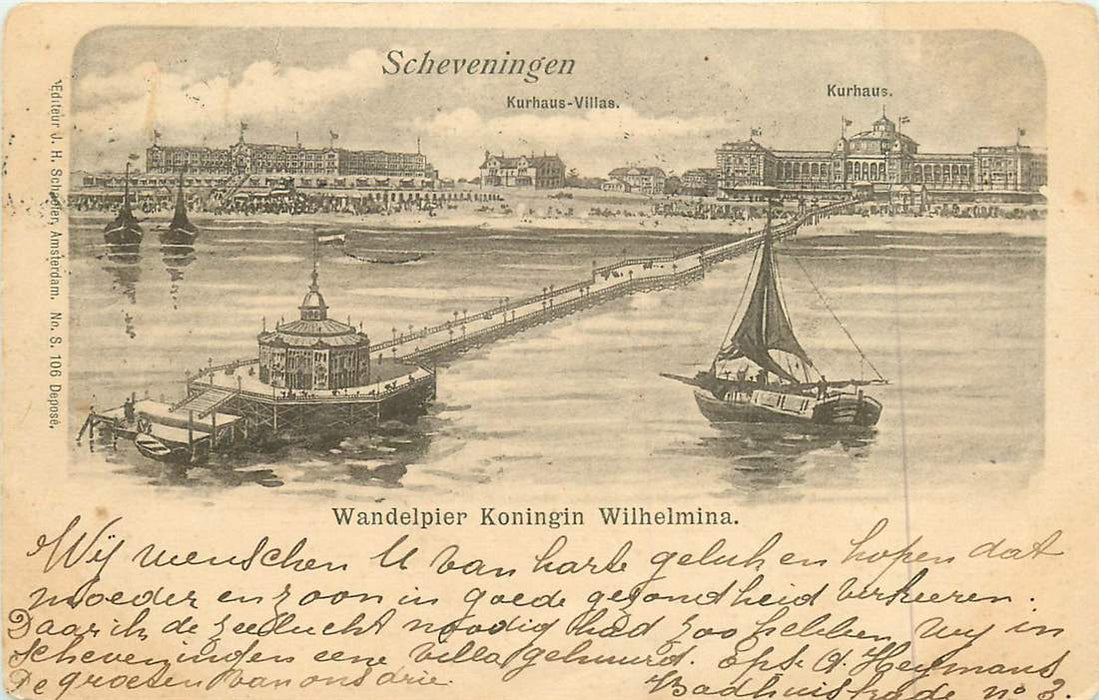 Scheveningen
Kurhaus-Villas.
Kurhaus.
Editeur J. H. Schaefer, Amsterdam. No. S. 106 Deposé.
Wandelpier Koningin Wilhelmina.
Wij wenschen U van harte geluk en hopen dat
moeder en zoon in goede gezondheid verkeeren.
Daar ik de zeelucht noodig had zoo hebben wy in
Scheveningen eene villa gehuurd. Heymans
De groeten van ons drie. Badhuiskade no 2.